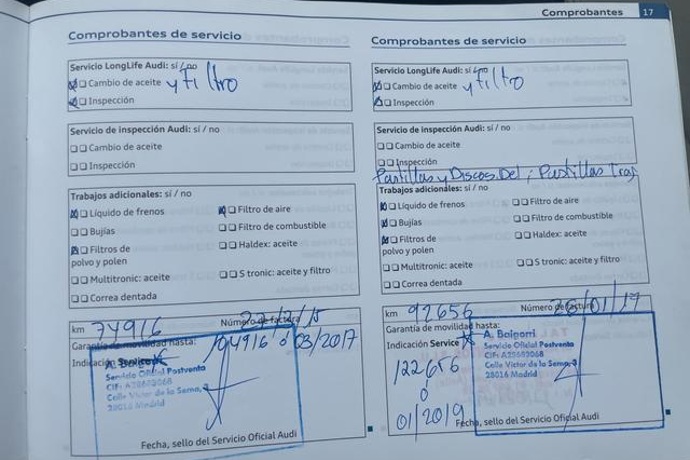 Comprobantes 17
Comprobantes de servicio
Servicio LongLife Audi: sí / no
Cambio de aceite y Filtro
Inspección
Servicio de inspección Audi: sí / no
Cambio de aceite
Inspección
Trabajos adicionales: sí / no
Líquido de frenos
Filtro de aire
Bujías
Filtro de combustible
Filtros de
polvo y polen
Haldex: aceite
Multitronic: aceite
S tronic: aceite y filtro
Correa dentada
km 74916 Número de factura
Garantía de movilidad hasta: 104916 ó 03/2017
Indicación Service
A. Baigorri
Servicio Oficial Postventa
Calle Víctor de la Serna, 3
28016 Madrid
Fecha, sello del Servicio Oficial Audi
Comprobantes de servicio
Servicio LongLife Audi: sí / no
Cambio de aceite y Filtro
Inspección
Servicio de inspección Audi: sí / no
Cambio de aceite
Inspección
Pastillas y Discos Del ; Pastillas Tras
Trabajos adicionales: sí / no
Líquido de frenos
Filtro de aire
Bujías
Filtro de combustible
Filtros de
polvo y polen
Haldex: aceite
Multitronic: aceite
S tronic: aceite y filtro
Correa dentada
km 92656 Número de factura 26/01/17
Garantía de movilidad hasta:
Indicación Service
A. Baigorri
Servicio Oficial Postventa
Calle Víctor de la Serna, 3
28016 Madrid
122656
ó
01/2019
Fecha, sello del Servicio Oficial Audi